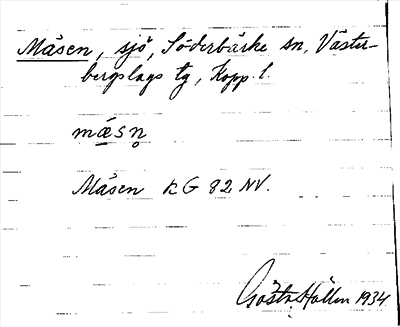 Måsen, sjö, Söderbärke sn, Väster-
bergslags tg, Kopp. l.
mǻsn̥
Måsen KG 82 NV.
Gösta Hallen 1934